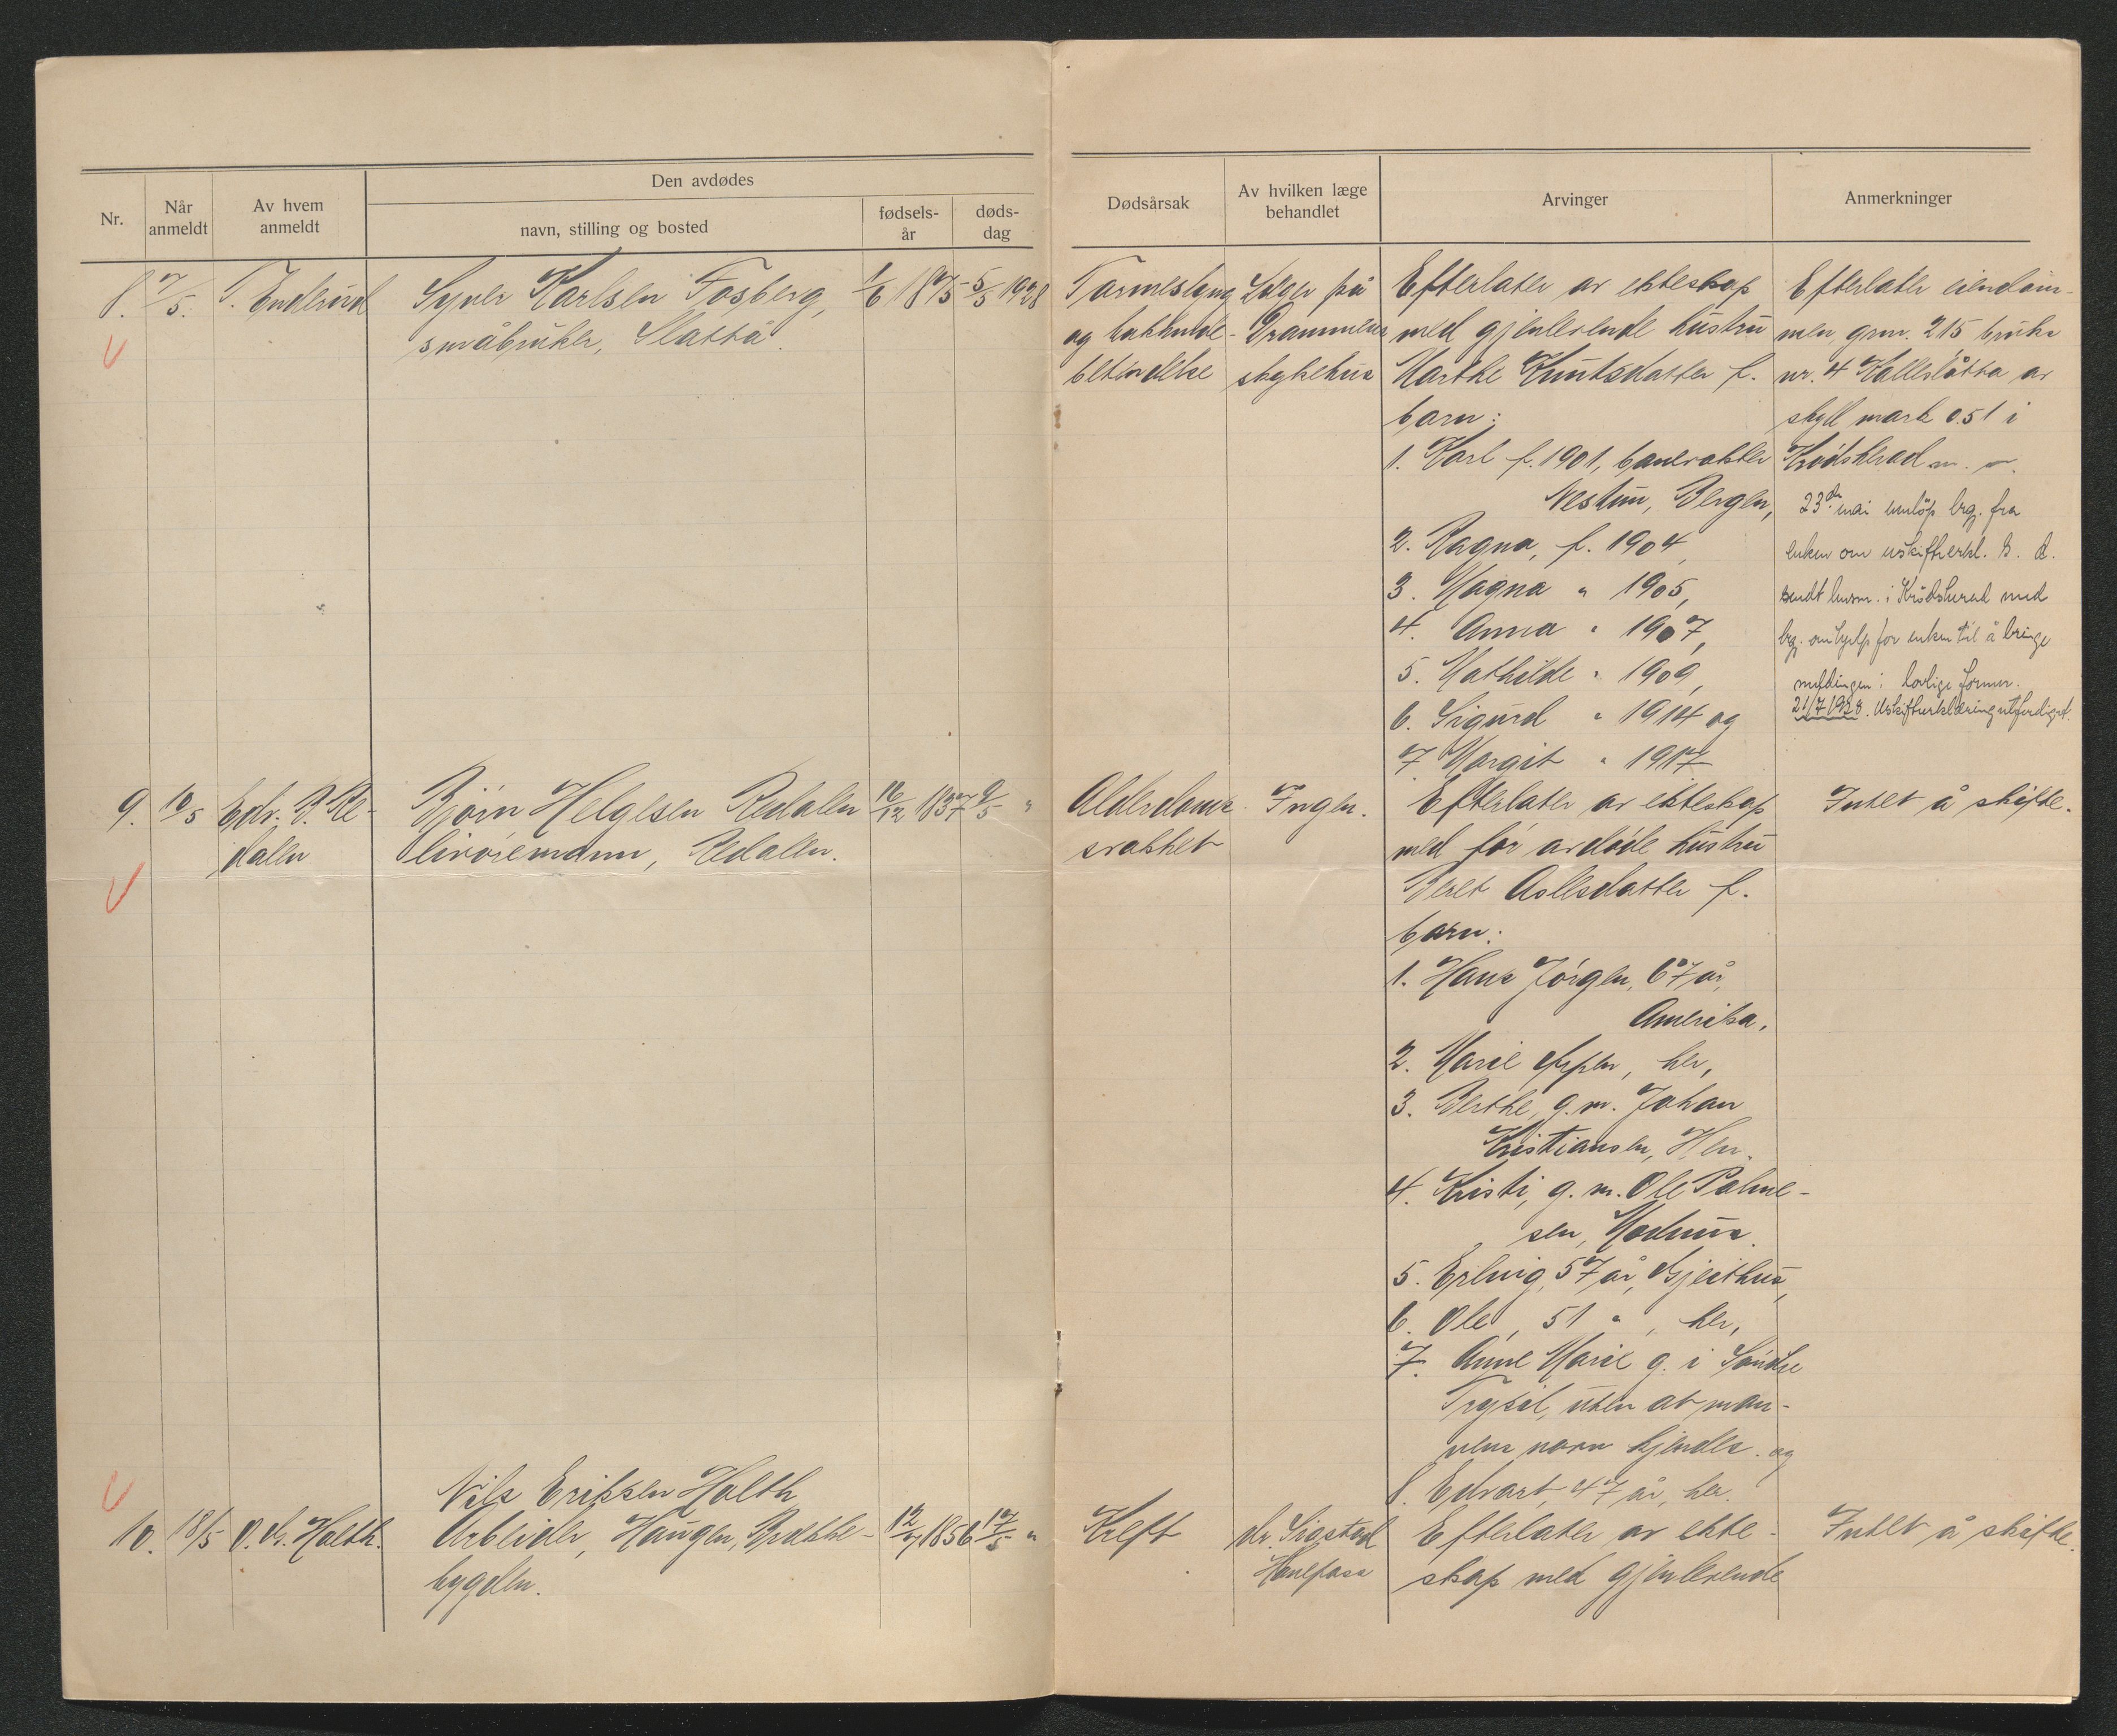 Den avdødes
Nr.
Når anmeldt
Av hvem anmeldt
navn, stilling og bosted
fødsels-år
døds-dag
Dødsårsak
Av hvilken læge behandlet
Arvinger
Anmerkninger
8. 7/5. T. Enderud
Syver Karlsen Fosberg,
småbruker, Slåttå
1/6 1875 5/5 1928
Tarmeslyng
og bukhinde-
betendelse
Læger på
Drammens
sykehus
Efterlater av ekteskap
med gjenlevende hustru
Marthe Knutsdatter f.
barn:
1. Karl f. 1901, banevokter
Nestun, Bergen,
2. Ragna, f. 1904,
3. Magna " 1905,
4. Anna " 1907,
5. Mathilde " 1909,
6. Sigurd " 1914 og
7 Margit " 1917
Efterlater eiendom-
men grnr. 215 bruks
nr. 4 Kalleslåtta av
skyld mark 0.51 i
Krødsherad m. v.
23de mai innløp beg. fra
enken om uskifteerkl. S. d.
sendt lensm. i Krødsherad med
beg. om hjelp for enken til å bringe
meldingen i lovlige former.
21/7 1928. Uskifteerklæring utferdiget.
9. 10/5 Edv. B. Re-
dalen
Bjørn Helgesen Redalen
livøremann, Redalen.
16/12 1837 9/5 "
Alderdoms
svakhet
Ingen.
Efterlater av ekteskap
med før avdøde hustru
Beret Asllesdatter f.
barn:
1. Hans Jørgen, 67 år,
Amerika,
2. Marie , her,
3. Berthe, g. m. Johan
Kristiansen, Hen.
4. Kristi, g. m. Ole Palme-
sen, Modum.
5. Erling, 57 år, Gjeithus,
6. Ole, 51 " , her,
7. Anne Marie g. i Søndre
Trysil, uten at man-
nens navn kjendes. og
8. Edvart, 47 år, her.
Intet å skifte.
10. 18/5 O. N. Holth.
Nils Eriksen Holth
Arbeider, Haugen, Bråkke-
bygden.
12/7 1856 17/5 "
Kreft
dr. Sigstad
Hønefoss
Efterlater av ekte-
skap med gjenlevende
Intet å skifte.